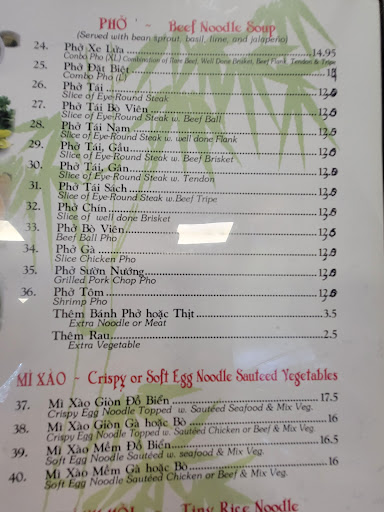 PHỞ - Beef Noodle Soup
(Served with bean sprout, basil, lime, and jalapeño)
24. Phở Xe Lửa 14.95
Combo Pho (XL) Combination of Rare Beef, Well Done Brisket, Beef Flank, Tendon & Tripe
25. Phở Đặt Biệt
Combo Pho (L)
26. Phở Tái
Slice of Eye-Round Steak
27. Phở Tái Bò Viên
Slice of Eye-Round Steak w. Beef Ball
28. Phở Tái Nam
Slice of Eye-Round Steak w. well done Flank
29. Phở Tái, Gầu
Slice of Eye-Round Steak w. Beef Brisket
30. Phở Tái, Gân
Slice of Eye-Round Steak w. Tendon
31. Phở Tái Sách
Slice of Eye-Round Steak w. Beef Tripe
32. Phở Chín
Slice of well done Brisket
33. Phở Bò Viên
Beef Ball Pho
34. Phở Gà
Slice Chicken Pho
35. Phở Sườn Nướng
Grilled Pork Chop Pho
36. Phở Tôm
Shrimp Pho
Thêm Bánh Phở hoặc Thịt 3.5
Extra Noodle or Meat
Thêm Rau 2.5
Extra Vegetable
MÌ XÀO - Crispy or Soft Egg Noodle Sauteed Vegetables
37. Mì Xào Giòn Đồ Biển 17.5
Crispy Egg Noodle Topped w. Sautéed Seafood & Mix Veg.
38. Mì Xào Giòn Gà hoặc Bò 16
Crispy Egg Noodle Topped w. Sautéed Chicken or Beef & Mix Veg.
39. Mì Xào Mềm Đồ Biển 16.5
Soft Egg Noodle Sautéed w. seafood & Mix Veg.
40. Mì Xào Mềm Gà hoặc Bò 16
Soft Egg Noodle Sautéed Chicken or Beef & Mix Veg.
Tiny Rice Noodle